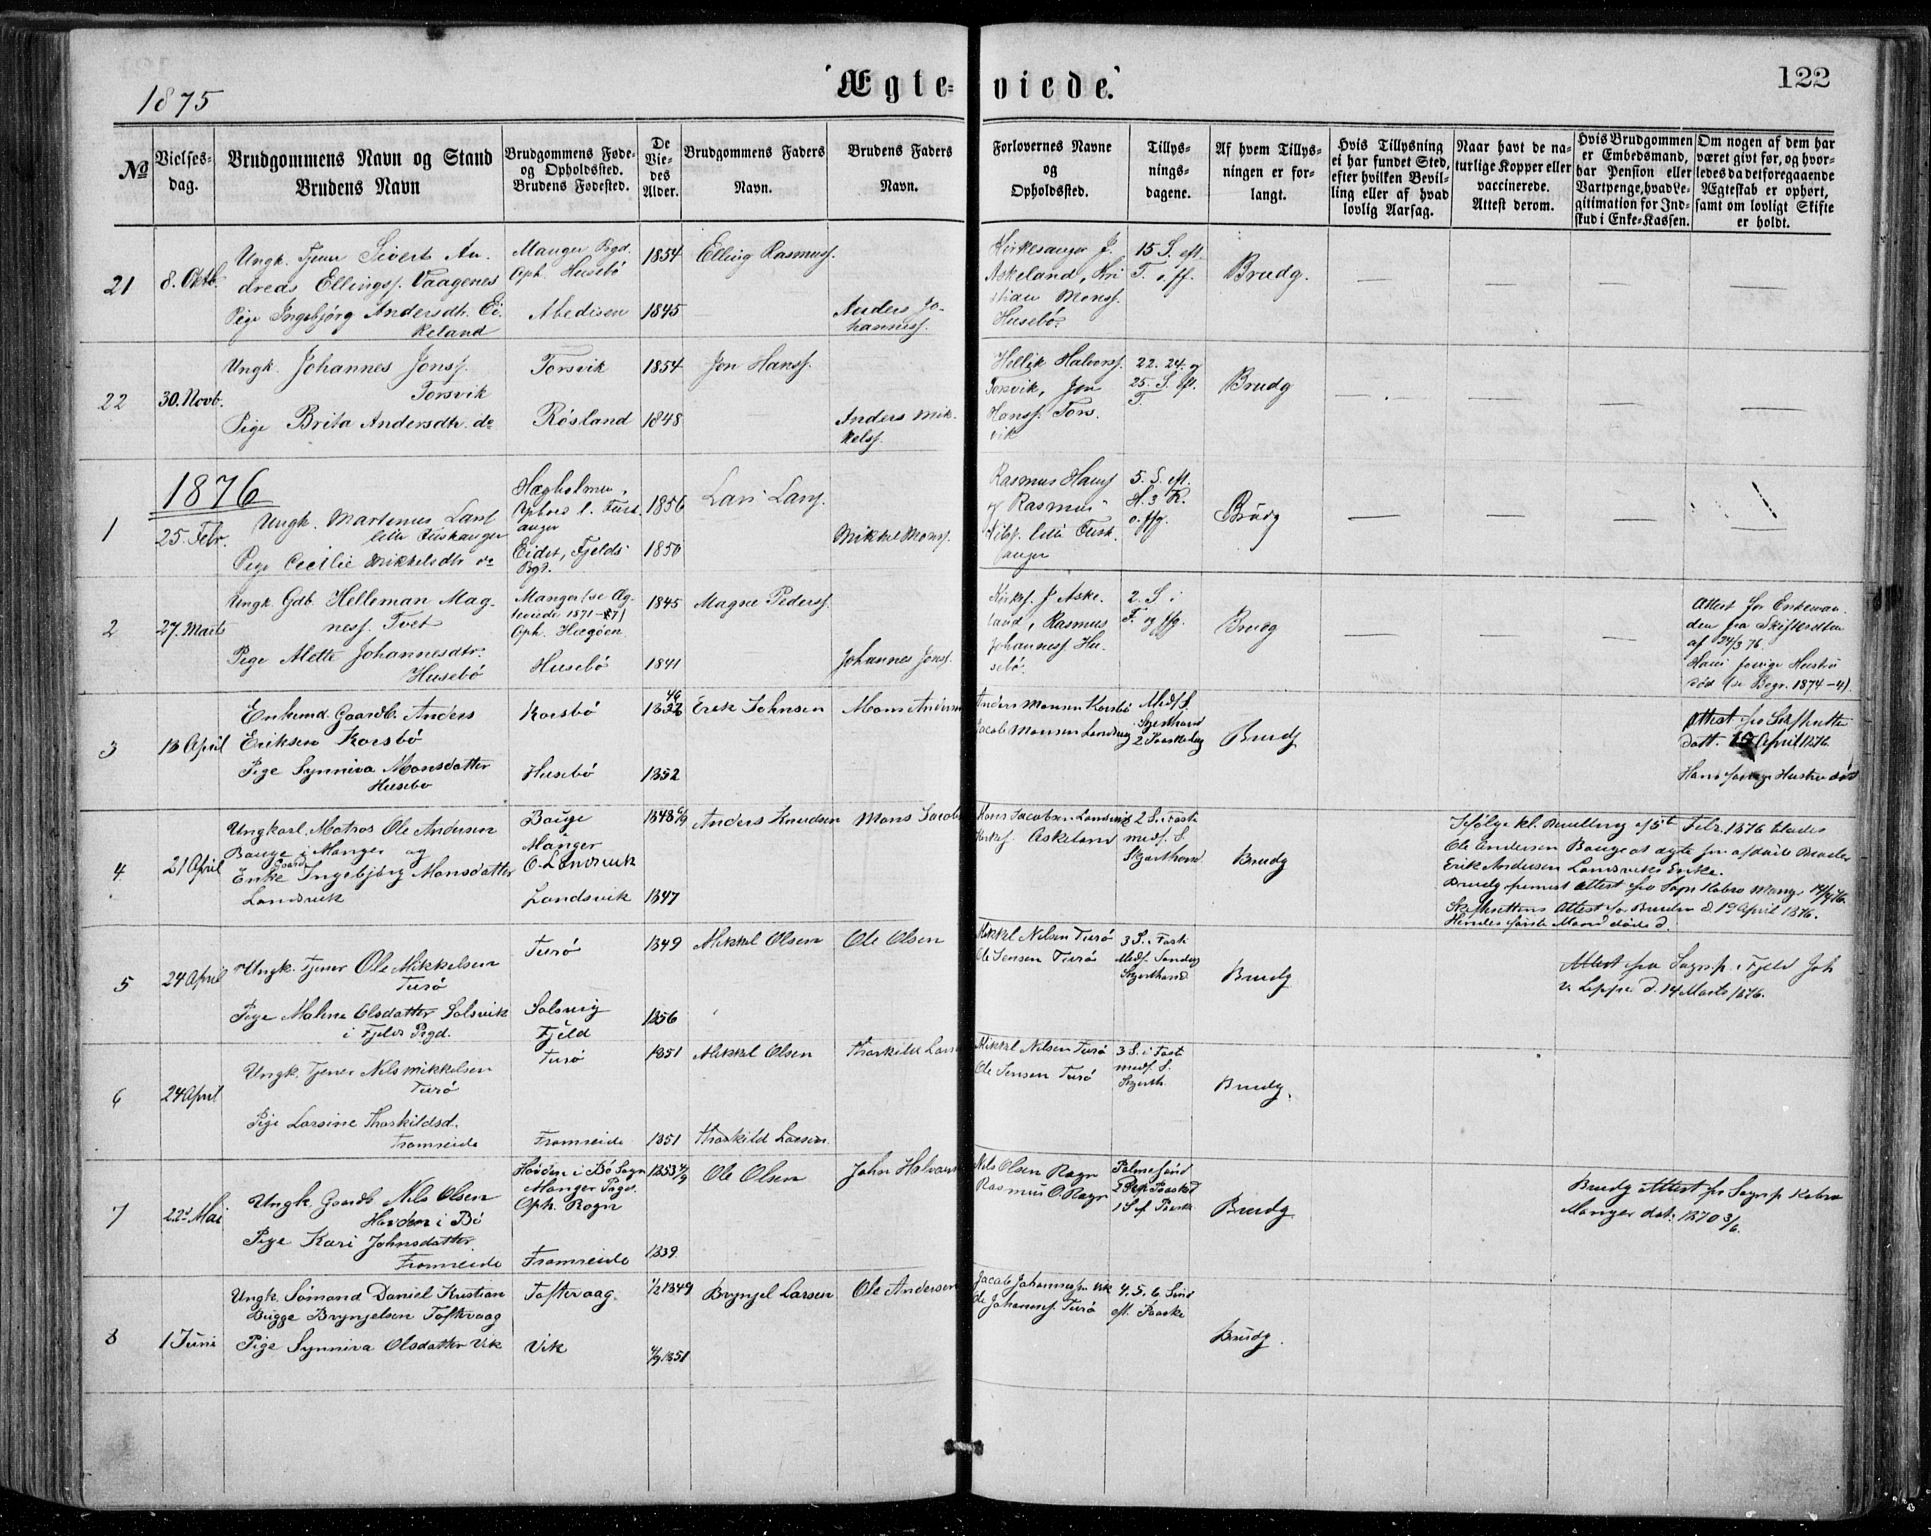 1875
Ægte-viede.
122
No
Vielses-
dag.
Brudgommens Navn og Stand
Brudens Navn
Brudgommens Føde-
og Opholdssted.
Brudens Fødested.
De
Vie-
des
Alder.
Brudgommens Faders
Navn.
Brudens Faders
Navn.
Forlovernes Navne
og
Opholdssted.
Tillys-
nings-
dagene.
Af hvem Tillys-
ningen er for-
langt.
Hvis Tillysning
ei har fundet Sted,
efter hvilken Bevil-
ling eller af hvad
lovlig Aarsag.
Naar havt de na-
turlige Kopper eller
vaccinerede.
Attest derom.
Hvis Brudgommen
er Embedsmand,
har Pension eller
Vartpenge, hvad Le-
gitimation for Ind-
skud i Enke-Kassen.
Om nogen af dem har
været givt før, og hvor-
ledes da det foregaaende
Ægteskab er ophørt,
samt om lovligt Skifte
er holdt.
21
8. Oktb.
Ungk. Tjener Sivert An-
dreas Ellingss. Vaagenes
Pige Ingebjørg Andersdtr. Ei-
keland
Manger Pgd.
Oph. Husebö
Abedisen
1854
1845
Elling Rasmuss.
Anders Jo-
hanness.
Kirkesanger J.
Askeland, Kri
stian Monss.
Husebö.
15 S. eft.
T. o. ff.
Brudg.
22
30. Novb.
Ungk. Johannes Jonss.
Torsvik
Pige Brita Andersdtr. do
Torsvik
Røsland
1854
1848
Jon Hanss.
Anders Mik-
kelss.
Hellik Halvorss.
Torsvik, Jon
Hanss. Tors-
vik
22. 24. og
25. S. eft.
T.
Brudg
1876
1
25. Febr.
Ungk. Martenus Larss
lille Turshanger
Pige Cecilie Mikkelsdtr do
Hægholmen,
Ophold l. Fursk-
anger
Eidet, Fjelds
Pgd.
1856
1850
Lars Larss.
Mikkel Monss.
Rasmus Hanss
og Rasmus
Nilss. lille Tursk-
anger
5. S. eft.
H. 3 K.
o. ffg.
Brudg
2
27. Marts
Ungk. Gdb. Helleman Mag-
ness. Tvet
Pige Alette Johannesdtr.
Husebö
Manger (se Æg-
teviede 1871-7)
Oph. Hægøen
Husebö
1845
1841
Magne Pederss.
Johannes Jonss.
Kirkes. J. Aske-
land, Rasmus
Johanness. Hu-
sebö.
2. S. i
F. og ffg.
Brudg
Attest for Enkeman-
den fra Skifteretten
af 24/3 76.
Hans forrige Hustru
død (se Begr. 1874-4).
3
18 April
Enkemd. Gaardb. Anders
Eriksen Korsbö
Pige Synniva Monsdatter
Husebö
Korsbö
Husebö
1852
Erik Johnsen
Mons Andersen
Anders Monsen Korsbö
Jacob Monsen Landsvig
Midf. S.
Skjerthorsd
2 Paaskedag
Brudg
Attest fra Skifteretten
datt. April 1876
Hans forrige Hustru død
4
21 April
Ungkarl Matros Ole Andersen
Bauge i Manger og
Gaard
Enke Ingebjörg Monsdatter
Landsvik
Bauge
Manger
O. Landsvik
Landsvik
1848
1847
Anders Knudsen
Mons Jacobs
Hans Jacobsen Landsvig
Kirkes. Askeland
2 S. i Faste
midf. S.
Skjerthorsd
Brudg
Ifölge kl. Bevilling af 5te Febr. 1876 tillades
Ole Andersen Bauge at ægte sin afdöde Broder
Erik Andersen Landsviks Enke.
Brudg fremvist Attest fra Sogn Kobro Mang.
Skifterettens Attest for Bruden d. 19 April 1876.
Hendes første Mand døde d.
5
24 April
Ungk. Tjener Ole Mikkelsen
Turö
Pige Malene Olsdatter Solsvik
i Fjelds Pgd.
Turö
Solsvig
Fjeld
1849
1856
Mikkel Olsen
Ole Olsen
Mikkel Nilsen Turö
Ole Jensen Turö
3 S. i Faste
Midf. Söndag
Skjerthorsd
Brudg
Attest fra Sognp. i Fjeld Joh
v. Lippe d. 14 Marts 1876.
6
24 April
Ungk. Tjener Nils Mikkelsen
Turö
Pige Larsine Thorkildsd.
Framreide
Turö
Framreide
1851
1851
Mikkel Olsen
Thorkild Larsen
Thorkild Larsen
Mikkel Nilsen Turö
Ole Jensen Turö
3 S. i Faste
midf. S.
Skjerth.
Brudg.
7
22d Mai
Ungk. Gaardb. Nils Olsen
Havden i Bö
Pige Kari Johnsdatter
Framreide
Havden i Bö Sogn
Manger Pgd.
Oph. Rogn
Framreide
1853
1839
Ole Olsen
John Halvorsen
Nils Olsen Rogn
Rasmus O. Rogn
Palmesönd
2 Paaskd
1 S. ef. Paaske
Brudg
Brudg Attest fra Sognp Kobro
Manger dat. 1870 3/6.
8
1 Juni
Ungk. Sömand Daniel Kristian
Bugge Brynjelsen Toftevaag
Pige Synniva Olsdatter Vik
Toftevaag
Vik
1/2 1849
4/9 1851
Brynjel Larsen
Ole Andersen
Jacob Johannessen Vik
Ole Johanness. Turö
4. 5. 6 Sönd
eft. Paaske
Brudg.